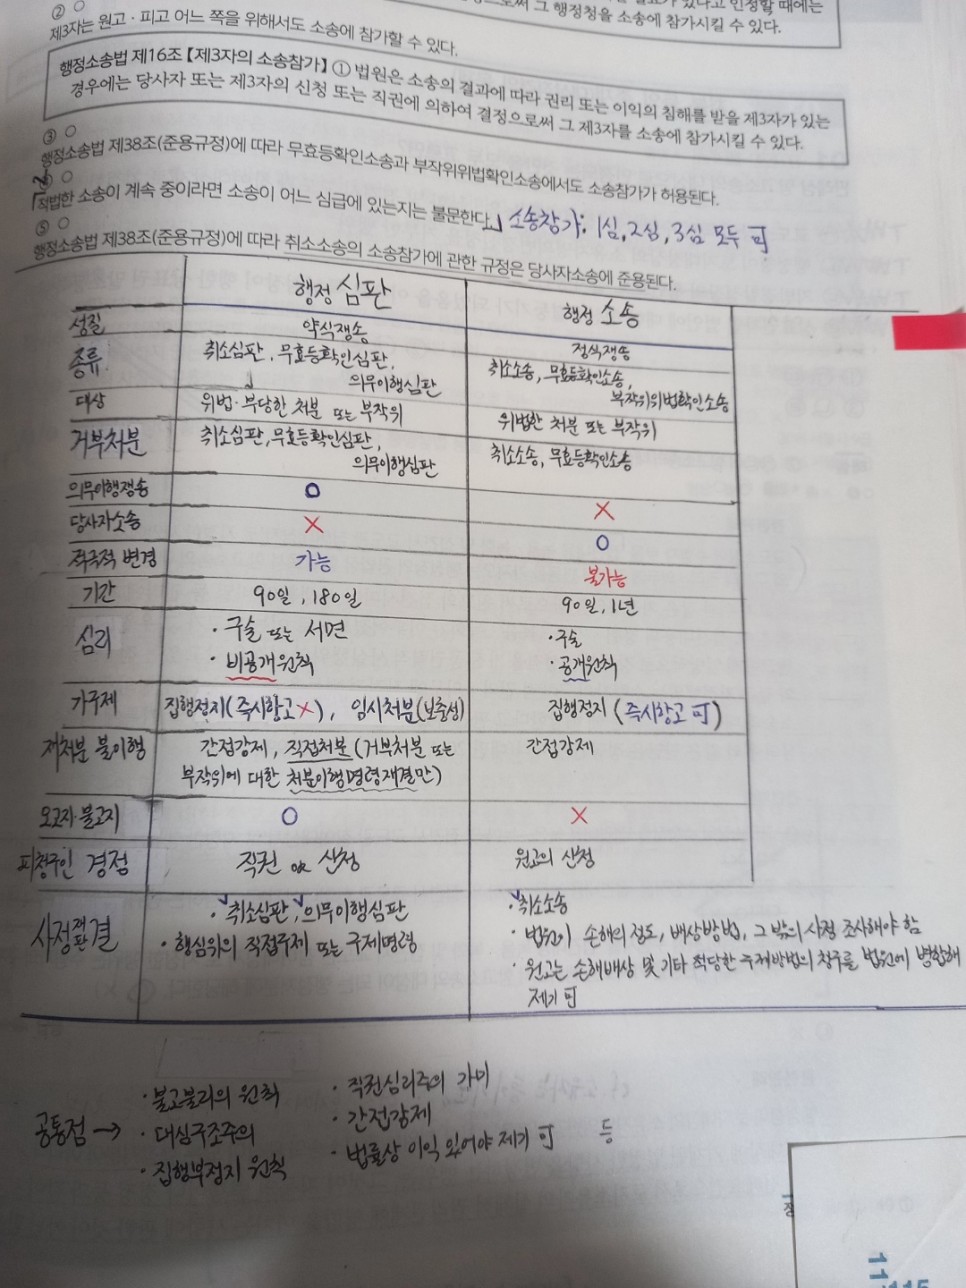 그 행정청을 소송에 참가시킬 수 있다.
② ○
제3자는 원고·피고 어느 쪽을 위해서도 소송에 참가할 수 있다.
행정소송법 제16조【제3자의 소송참가】 ① 법원은 소송의 결과에 따라 권리 또는 이익의 침해를 받을 제3자가 있는
경우에는 당사자 또는 제3자의 신청 또는 직권에 의하여 결정으로써 그 제3자를 소송에 참가시킬 수 있다.
③ ○
행정소송법 제38조(준용규정)에 따라 무효등확인소송과 부작위위법확인소송에서도 소송참가가 허용된다.
④ ○
「적법한 소송이 계속 중이라면 소송이 어느 심급에 있는지는 불문한다.」 소송참가: 1심, 2심, 3심 모두 可
⑤ ○
행정소송법 제38조(준용규정)에 따라 취소소송의 소송참가에 관한 규정은 당사자소송에 준용된다.
행정 심판 행정 소송
성질 약식쟁송 정식쟁송
종류 취소심판, 무효등확인심판, 취소소송, 무효등확인소송,
의무이행심판 부작위위법확인소송
대상 위법·부당한 처분 또는 부작위 위법한 처분 또는 부작위
거부처분 취소심판, 무효등확인심판, 취소소송, 무효등확인소송
의무이행심판
의무이행쟁송 O X
당사자소송 X O
적극적 변경 가능 불가능
기간 90일, 180일 90일, 1년
심리 · 구술 또는 서면 · 구술
· 비공개원칙 · 공개원칙
가구제 집행정지(즉시항고X), 임시처분(보충성) 집행정지 (즉시항고 可)
재처분 불이행 간접강제, 직접처분 (거부처분 또는 간접강제
부작위에 대한 처분이행명령재결만)
오고지·불고지 O X
피청구인 경정 직권 or 신청 원고의 신청
사정재결 판결 · 취소심판, 의무이행심판 · 취소소송
· 행심위의 직접구제 또는 구제명령 · 법원이 손해의 정도, 배상방법, 그 밖의 사정 조사해야 함
· 원고는 손해배상 및 기타 적당한 구제방법의 청구를 법원에 병합해
제기 可
공통점 → · 불고불리의 원칙 · 직권심리주의 가미
· 대심구조주의 · 간접강제
· 집행부정지 원칙 · 법률상 이익 있어야 제기 可 등